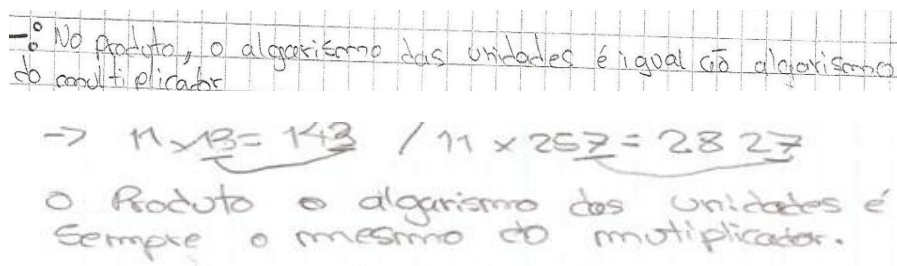 -° No Produto, o algarismo das unidades é igual ao algarismo
do multiplicador
→ 11 x 13 = 143 / 11 x 257 = 2827
O Produto o algarismo das unidades é
sempre o mesmo do mutiplicador.